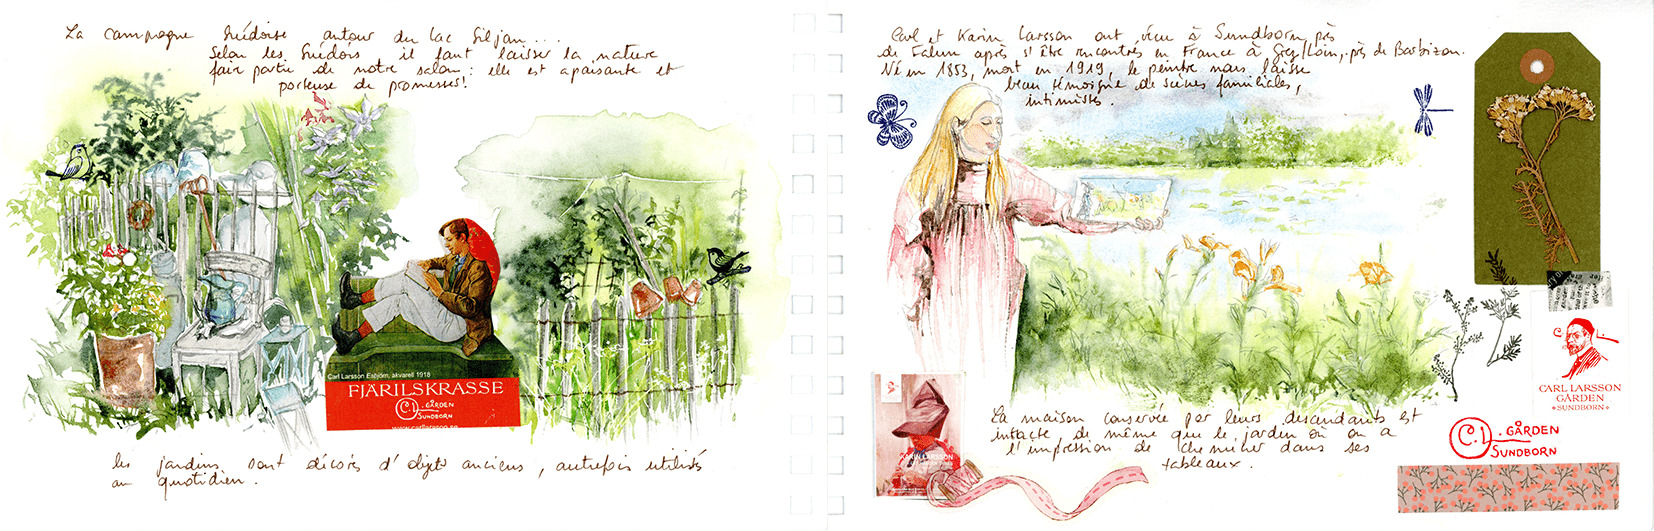 La campagne Suédoise autour du lac Siljan....
Selon les Suédois il faut laisser la nature
faire partie de notre salon : elle est apaisante et
porteuse de promesses!
Carl Larsson Esbjörn, akvarell 1918
FJÄRILSKRASSE
C.L. GÅRDEN
SUNDBORN
les jardins sont décorés d'objets anciens, autrefois utilisés
au quotidien.
Carl et Karin Larsson ont vécu à Sundborn près
de Falun après s'être rencontrés en France à Grez/Loin, près de Barbizon.
Né en 1853, mort en 1919, le peintre nous laisse
beau témoigné de scènes familiales,
intimistes.
C. L.
CARL LARSSON
GÅRDEN
SUNDBORN
C.L. GÅRDEN
SUNDBORN
CARL LARSSON
La maison conservée par leurs descendants est
intacte de même que le jardin où on a
l'impression de cheminer dans ses
tableaux.